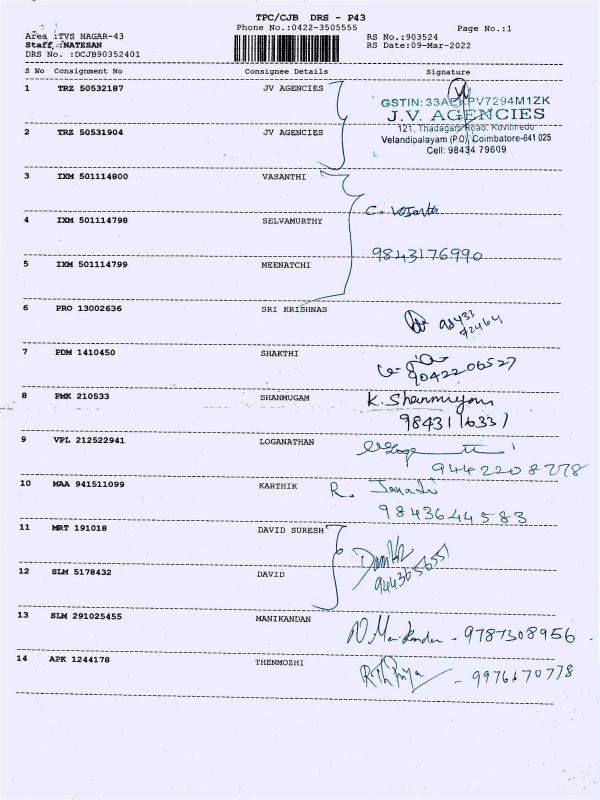 TPC/CJB DRS - P43
Phone No.:0422-3505555 Page No.:1
Area :TVS NAGAR-43 RS No.:903524
Staff :NATESAN RS Date:09-Mar-2022
DRS No. :DCJB90352401
S No Consignment No Consignee Details Signature
1 TRZ 50532187 JV AGENCIES
GSTIN: PV7294M1ZK
J.V. AGENCIES
121, Thadagam Road, Kuvilmedu
2 TRZ 50531904 JV AGENCIES
Velandipalayam (P.O), Coimbatore-641 025
Cell: 98434 79609
3 IXM 501114800 VASANTHI
C. Vasantha
4 IXM 501114798 SELVAMURTHY
9843176990
5 IXM 501114799 MEENATCHI
6 PRO 13002636 SRI KRISHNAS
7 PDM 1410450 SHAKTHI
9042206527
8 PMK 210533 SHANMUGAM K. Shanmugam
9 VPL 212522941 LOGANATHAN
9442208778
10 MAA 941511099 KARTHIK R.
9843644583
11 MRT 191018 DAVID SURESH
12 SLM 5178432 DAVID
13 SLM 291025455 MANIKANDAN
N. Manikandan - 9787308956
14 APK 1244178 THENMOZHI
- 9976170778